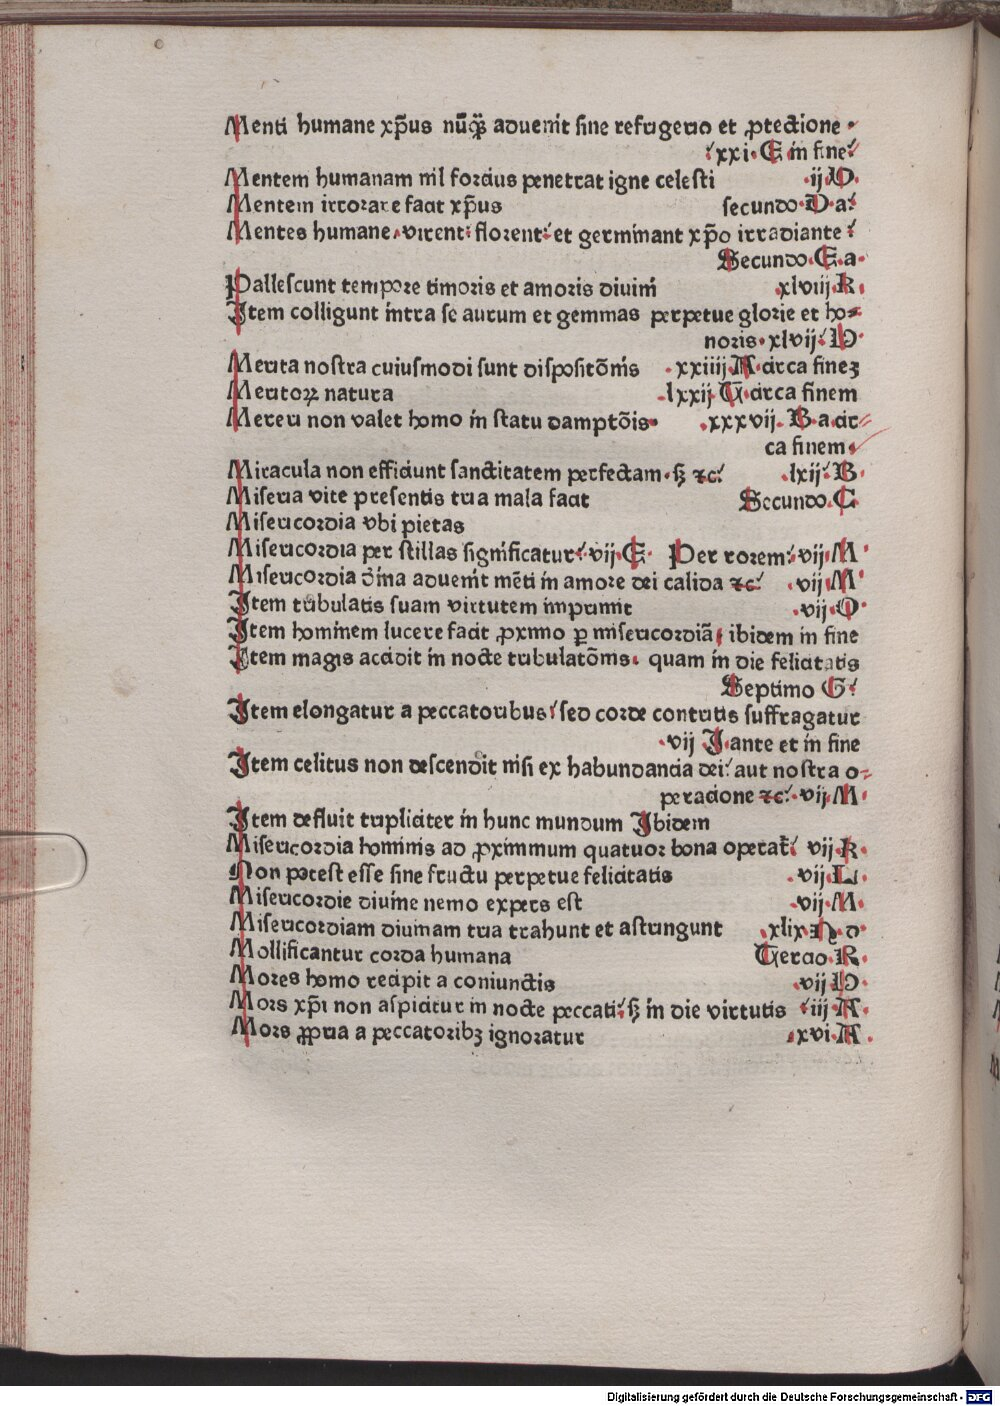 Menti humane xp̄us nūq̄ȝ aduenit sine refrigerio et ꝓtectione ·
xxi · E in fine
Mentem humanam nil forcius penetrat igne celesti · ij · D ·
Mentem irrorare facit xp̄us secundo · D a ·
Mentes humane · virent : florent : et germinant xp̄o irradiante :
Secundo · E · a ·
Pallescunt tempore timoris et amoris diuini xlviij · R ·
Item colligunt intra se aurum et gemmas perpetue glorie et ho⸗
noris · xlvij · D ·
Merita nostra cuiusmodi sunt dispositōnis · xxiiij · A · circa fineȝ
Meritoꝝ natura · lxxij · G · circa finem
Mereri non valet homo in statu damptōis · · xxxvij · B · a · cir⸗
ca finem ·
Miracula non efficiunt sanctitatem perfectam · sȝ ⁊c̄ · lxij · B ·
Miseria vite presentis tria mala facit Secundo · C ·
Misericordia vbi pietas
Misericordia per stillas significatur · vij · E · Per rorem · vij · M ·
Misericordia diīna aduenit mēti in amore dei calida ⁊c̄ · vij · M ·
Item tribulatis suam virtutem imprimit · vij · O ·
Item hominem lucere facit ꝓximo ꝑ misericordiā · ibidem in fine
Item magis accidit in nocte tribulatōnis · quam in die felicitatis
Septimo G ·
Item elongatur a peccatoribus · sed corde contritis suffragatur
· vij · I · ante et in fine
Item celitus non descendit nisi ex habundancia dei · aut nostra o⸗
peracione ⁊c̄ · vij · M ·
Item defluit tripliciter in hunc mundum Ibidem
Misericordia hominis ad ꝓximmum quatuor bona operat̄ · vij · K ·
Non potest esse sine fructu perpetue felicitatis · vij · L ·
Misericordie diuine nemo expers est · vij · M ·
Misericordiam diuinam tria trahunt et astringunt · xlix · N · d ·
Mollificantur corda humana Tercio · R ·
Mores homo recipit a coniunctis · vij · D ·
Mors xp̄i non aspicitur in nocte peccati · sȝ in die virtutis · iij · A ·
Mors ꝓpria a peccatoribȝ ignoratur · xvi · A ·
Digitalisierung gefördert durch die Deutsche Forschungsgemeinschaft - DFG